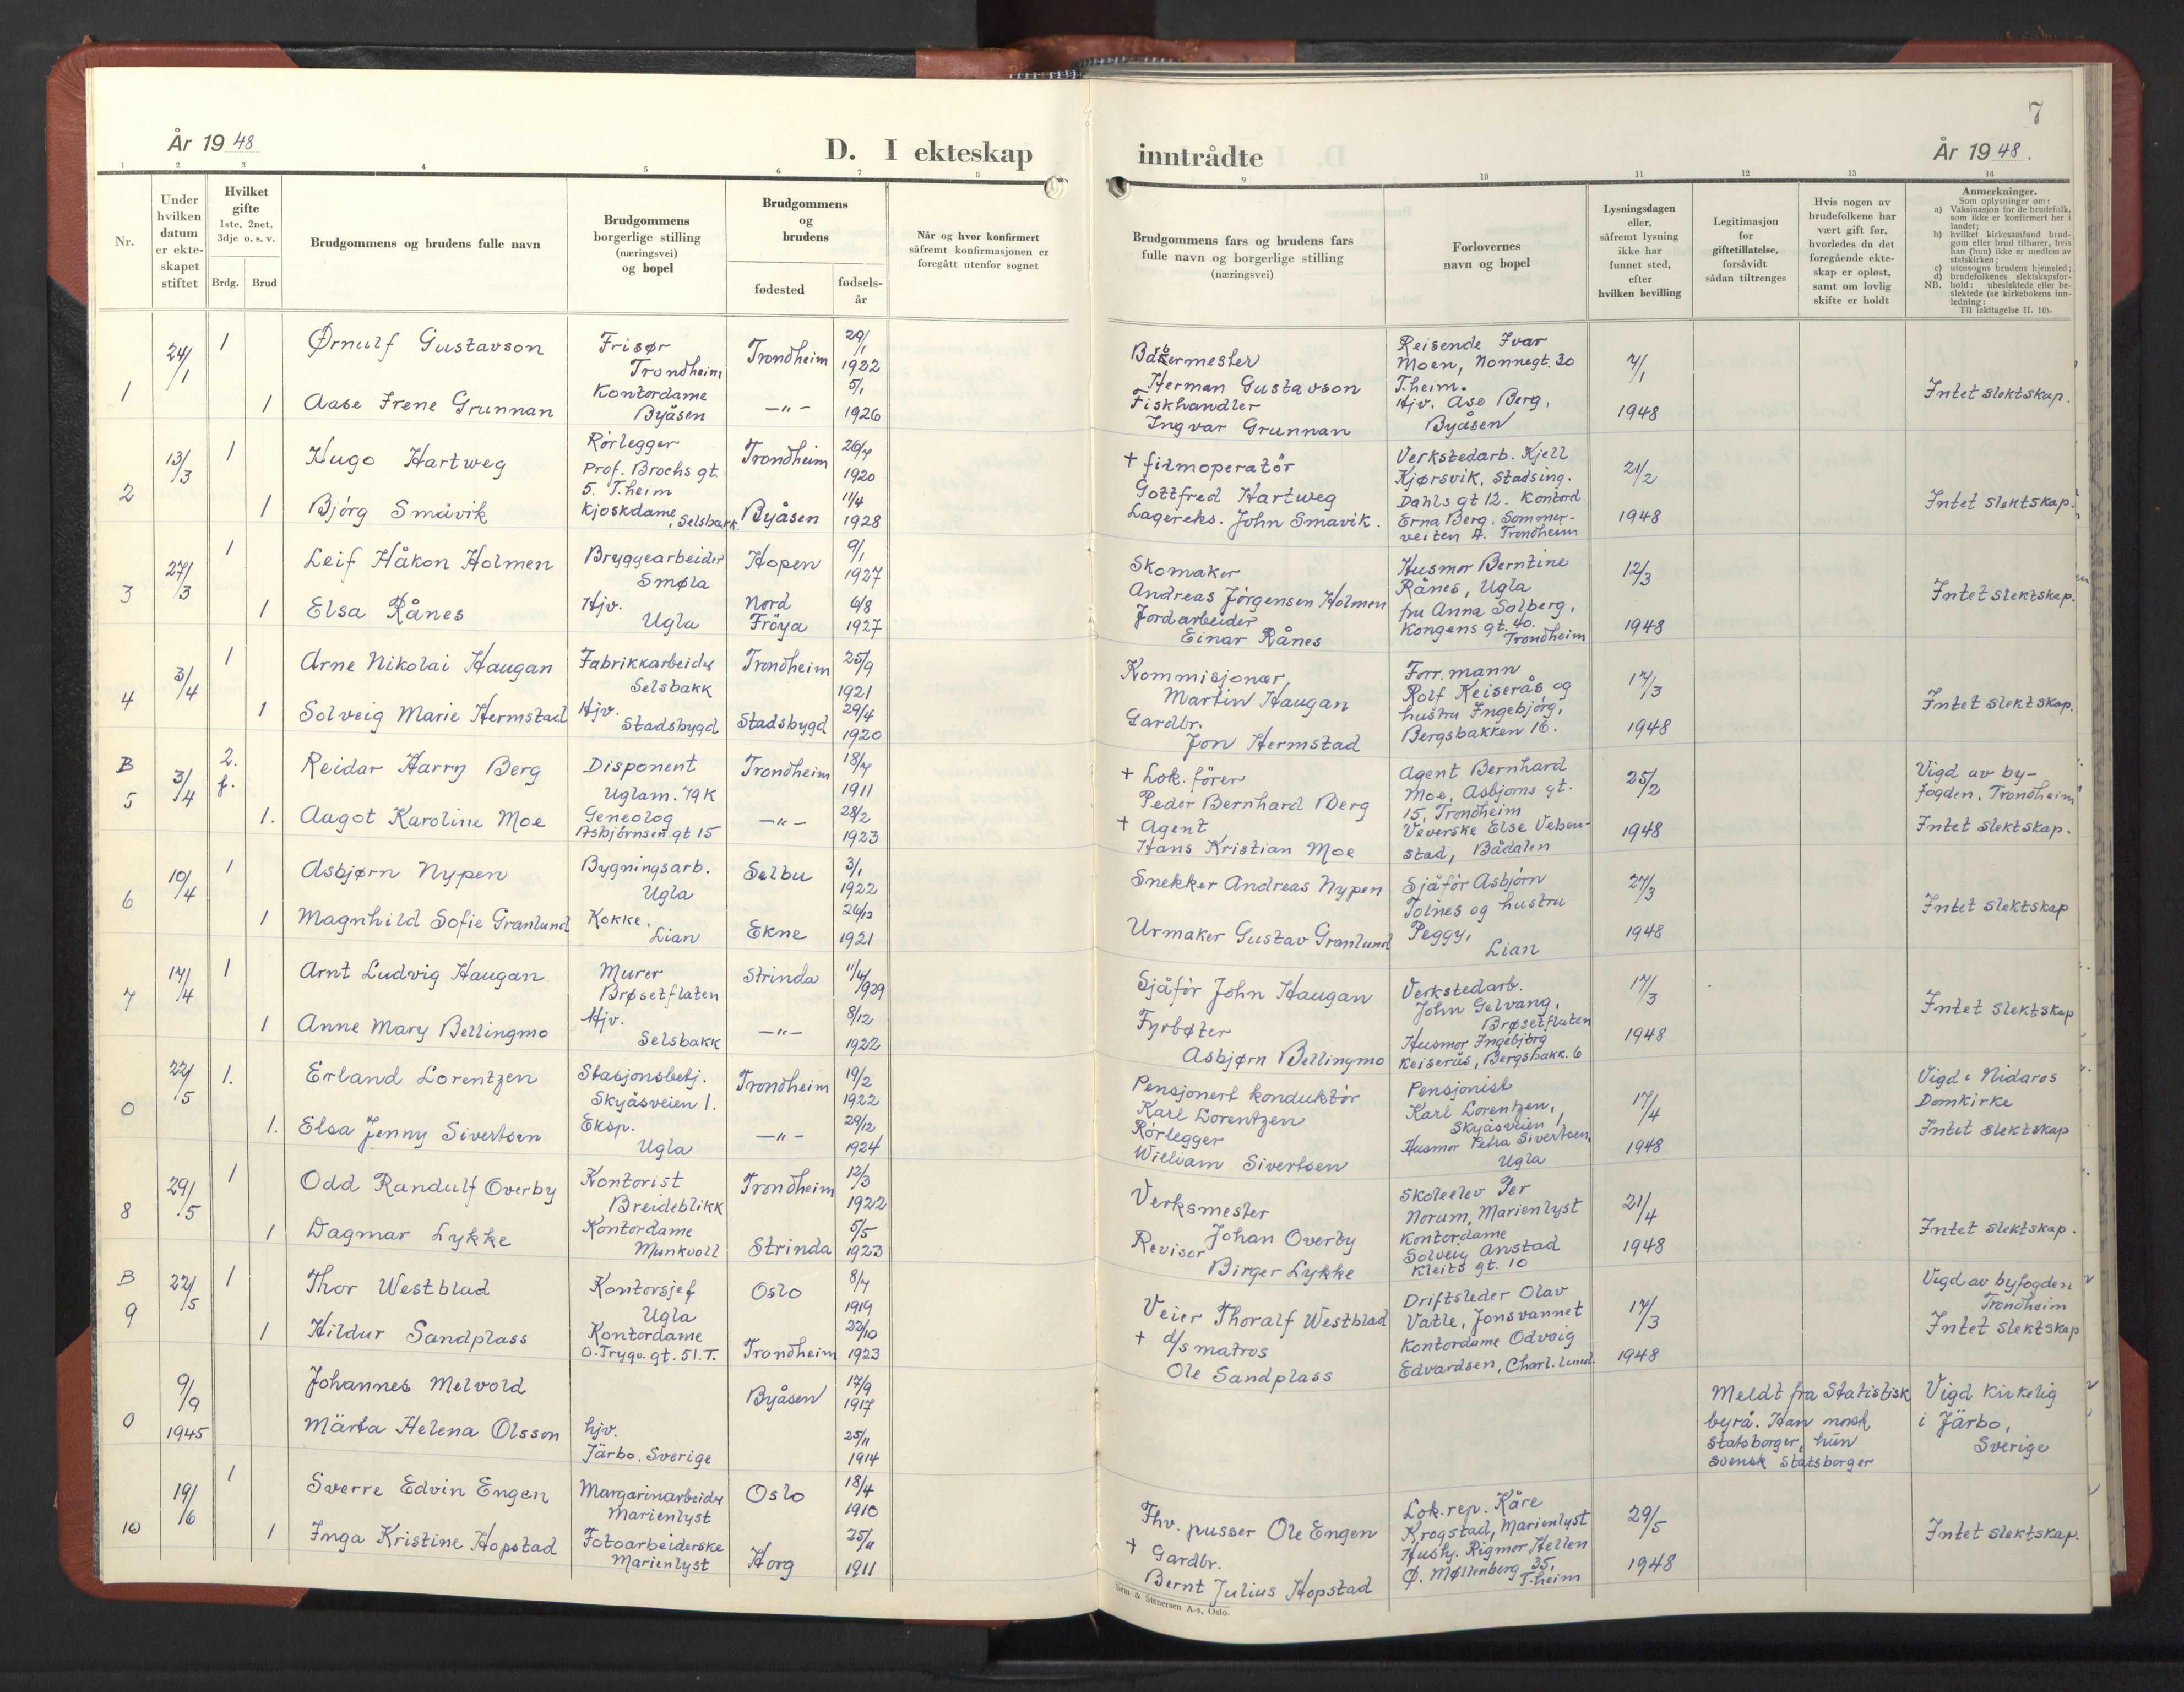 7
År 1948
D. I ekteskap
inntrådte
År 1948.
1 2 3 4 5 6 7 8 9 10 11 12 13 14
Nr.
Under hvilken datum er ekte-skapet stiftet
Hvilket gifte 1ste, 2net, 3dje o. s. v.
Brdg. Brud
Brudgommens og brudens fulle navn
Brudgommens borgerlige stilling (næringsvei) og bopel
Brudgommens og brudens
fødested
fødsels-år
Når og hvor konfirmert såfremt konfirmasjonen er foregått utenfor sognet
Brudgommens fars og brudens fars fulle navn og borgerlige stilling (næringsvei)
Forlovernes navn og bopel
Lysningsdagen eller, såfremt lysning ikke har funnet sted, efter hvilken bevilling
Legitimasjon for giftetillatelse, forsåvidt sådan tiltrenges
Hvis nogen av brudefolkene har vært gift før, hvorledes da det foregående ekte-skap er opløst, samt om lovlig skifte er holdt
Anmerkninger.
Som oplysninger om:
a) Vaksinasjon for de brudefolk, som ikke er konfirmert her i landet;
b) hvilket kirkesamfund brud-gom eller brud tilhører, hvis han (hun) ikke er medlem av statskirken;
c) utensogns brudens hjemsted;
d) brudefolkenes slektskapsfor-hold: ubeslektede eller be-slektede (se kirkebokens inn-ledning:
NB.
Til iakttagelse II. 10).
1
24/1
1
Ørnulf Gustavson
Frisør
Trondheim
Trondheim
29/1
1922
Barbermester
Herman Gustavson
Reisende Ivar
Moen, Nonnegt. 30
T.heim.
4/1
1948
1
Aase Irene Grunnan
Kontordame
Byåsen
—"—
5/1
1926
Fiskhandler
Ingvar Grunnan
Hjv. Åse Berg,
Byåsen
Intet slektskap.
2
13/3
1
Hugo Hartweg
Rørlegger
Prof. Brochs gt.
5. T.heim
Trondheim
26/7
1920
+ filmoperatör
Gottfred Hartweg
Verkstedarb. Kjell
Kjørsvik, Stadsing.
Dahls gt 12. Kontord
21/2
1948
1
Bjørg Småvik
Kjoskdame
, Selsbakk.
Byåsen
11/4
1928
Lagereks. John Småvik.
Erna Berg. Sommer-
veiten 4. Trondheim
Intet slektskap.
3
27/3
1
Leif Håkon Holmen
Bryggearbeider
Smøla
Hopen
9/1
1927
Skomaker
Andreas Jörgensen Holmen
Husmor Berntine
Rånes, Ugla
12/3
1948
1
Elsa Rånes
Hjv.
Ugla
Nord
Fröya
6/8
1927
Jordarbeider
Einar Rånes
fru Anna Solberg,
Kongens gt. 40.
Trondheim
Intet slektskap.
4
3/4
1
Arne Nikolai Haugan
Fabrikkarbeider
Selsbakk
Trondheim
25/9
1921
Kommisjonær
Martin Haugan
Forr.mann
Rolf Keiserås og
17/3
1948
1
Solveig Marie Hermstad
Hjv.
Stadsbygd
Stadsbygd
29/4
1920
Gardbr.
Jon Hermstad
hustru Ingebjörg,
Bergsbakken 16.
Intet slektskap.
B
5
3/4
2.
f.
Reidar Harry Berg
Disponent
Uglam. 79K
Trondheim
18/7
1911
+ Lok. förer
Peder Bernhard Berg
Agent Bernhard
Moe, Asbjørns gt.
15, Trondheim
25/2
1948
Vigd av by-
fogden, Trondheim
1.
Aagot Karoline Moe
Geneolog
Asbjörnsen.gt 15
—"—
28/2
1923
+ Agent
Hans Kristian Moe
Veverske Else Veben-
stad, Bådalen
Intet slektskap.
6
10/4
1
Asbjørn Nypen
Bygningsarb.
Ugla
Selbu
3/1
1922
Snekker Andreas Nypen
Sjåför Asbjörn
Tolnes og hustru
27/3
1948
1
Magnhild Sofie Granlund
Kokke,
Lian
Ekne
26/12
1921
Urmaker Gustav Granlund
Peggy,
Lian
Intet slektskap
7
17/4
1
Arnt Ludvig Haugan
Murer
Brøsetflaten
Strinda
11/4
1929
Sjåför John Haugan
Verkstedarb.
John Gelvang,
Brøsetflaten
17/3
1948
1
Anne Mary Bellingmo
Hjv.
Selsbakk
—"—
8/12
1922
Fyrbøter
Asbjørn Bellingmo
Husmor Ingebjörg
Keiserås, Bergsbakk. 6
Intet slektskap
0
22/5
1.
Erland Lorentzen
Stasjonsbetj.
Skyåsveien 1.
Trondheim
19/2
1922
Pensjonert konduktör
Karl Lorentzen
Pensjonist
Karl Lorentzen,
Skyåsveien 1
17/4
1948
Vigd i Nidaros
Domkirke
1.
Elsa Jenny Sivertsen
Eksp.
Ugla
—"—
29/12
1924
Rörlegger
William Sivertsen
Husmor Petra Sivertsen,
Ugla
Intet slektskap
8
29/5
1
Odd Randulf Overby
Kontorist
Breideblikk
Trondheim
12/3
1922
Verksmester
Johan Overby
Skoleelev Per
Norum, Marienlyst
21/4
1948
1
Dagmar Lykke
Kontordame
Munkvoll
Strinda
5/5
1923
Revisor
Birger Lykke
Kontordame
Solveig Anstad
Kleits gt. 10
Intet slektskap.
B
9
22/5
1
Thor Westblad
Kontorsjef
Ugla
Oslo
8/7
1919
Veier Thoralf Westblad
Driftsleder Olav
Vatle, Jonsvannet
17/3
1948
Vigd av byfogden
Trondheim
1
Hildur Sandplass
Kontordame
O.Trygv. gt. 51. T.
Trondheim
22/10
1923
+ d/s matros
Ole Sandplass
Kontordame Odvaig
Edvardsen, Charl.lund.
Intet slektskap
0
9/9
1945
Johannes Melvold
Byåsen
17/9
1917
Meldt fra Statistisk
byrå. Han norsk
Statsborger, hun
svensk Statsborger
Vigd kirkelig
i Järbo,
Sverige
Märta Helena Olsson
hjv.
Järbo. Sverige
25/11
1914
10
19/6
1
Sverre Edvin Engen
Margarinarbeider
Marienlyst
Oslo
18/4
1910
Fhv. pusser Ole Engen
Lok.rep. Kåre
Krogstad, Marienlyst
29/5
1948
1
Inga Kristine Hopstad
Fotoarbeiderske
Marienlyst
Horg
25/11
1911
+ Gardbr.
Bernt Julius Hopstad
Hush. Rigmor Hellen
Ø. Møllenberg 35,
T.heim
Intet slektskap.
Sem & Stenersen A-s, Oslo.